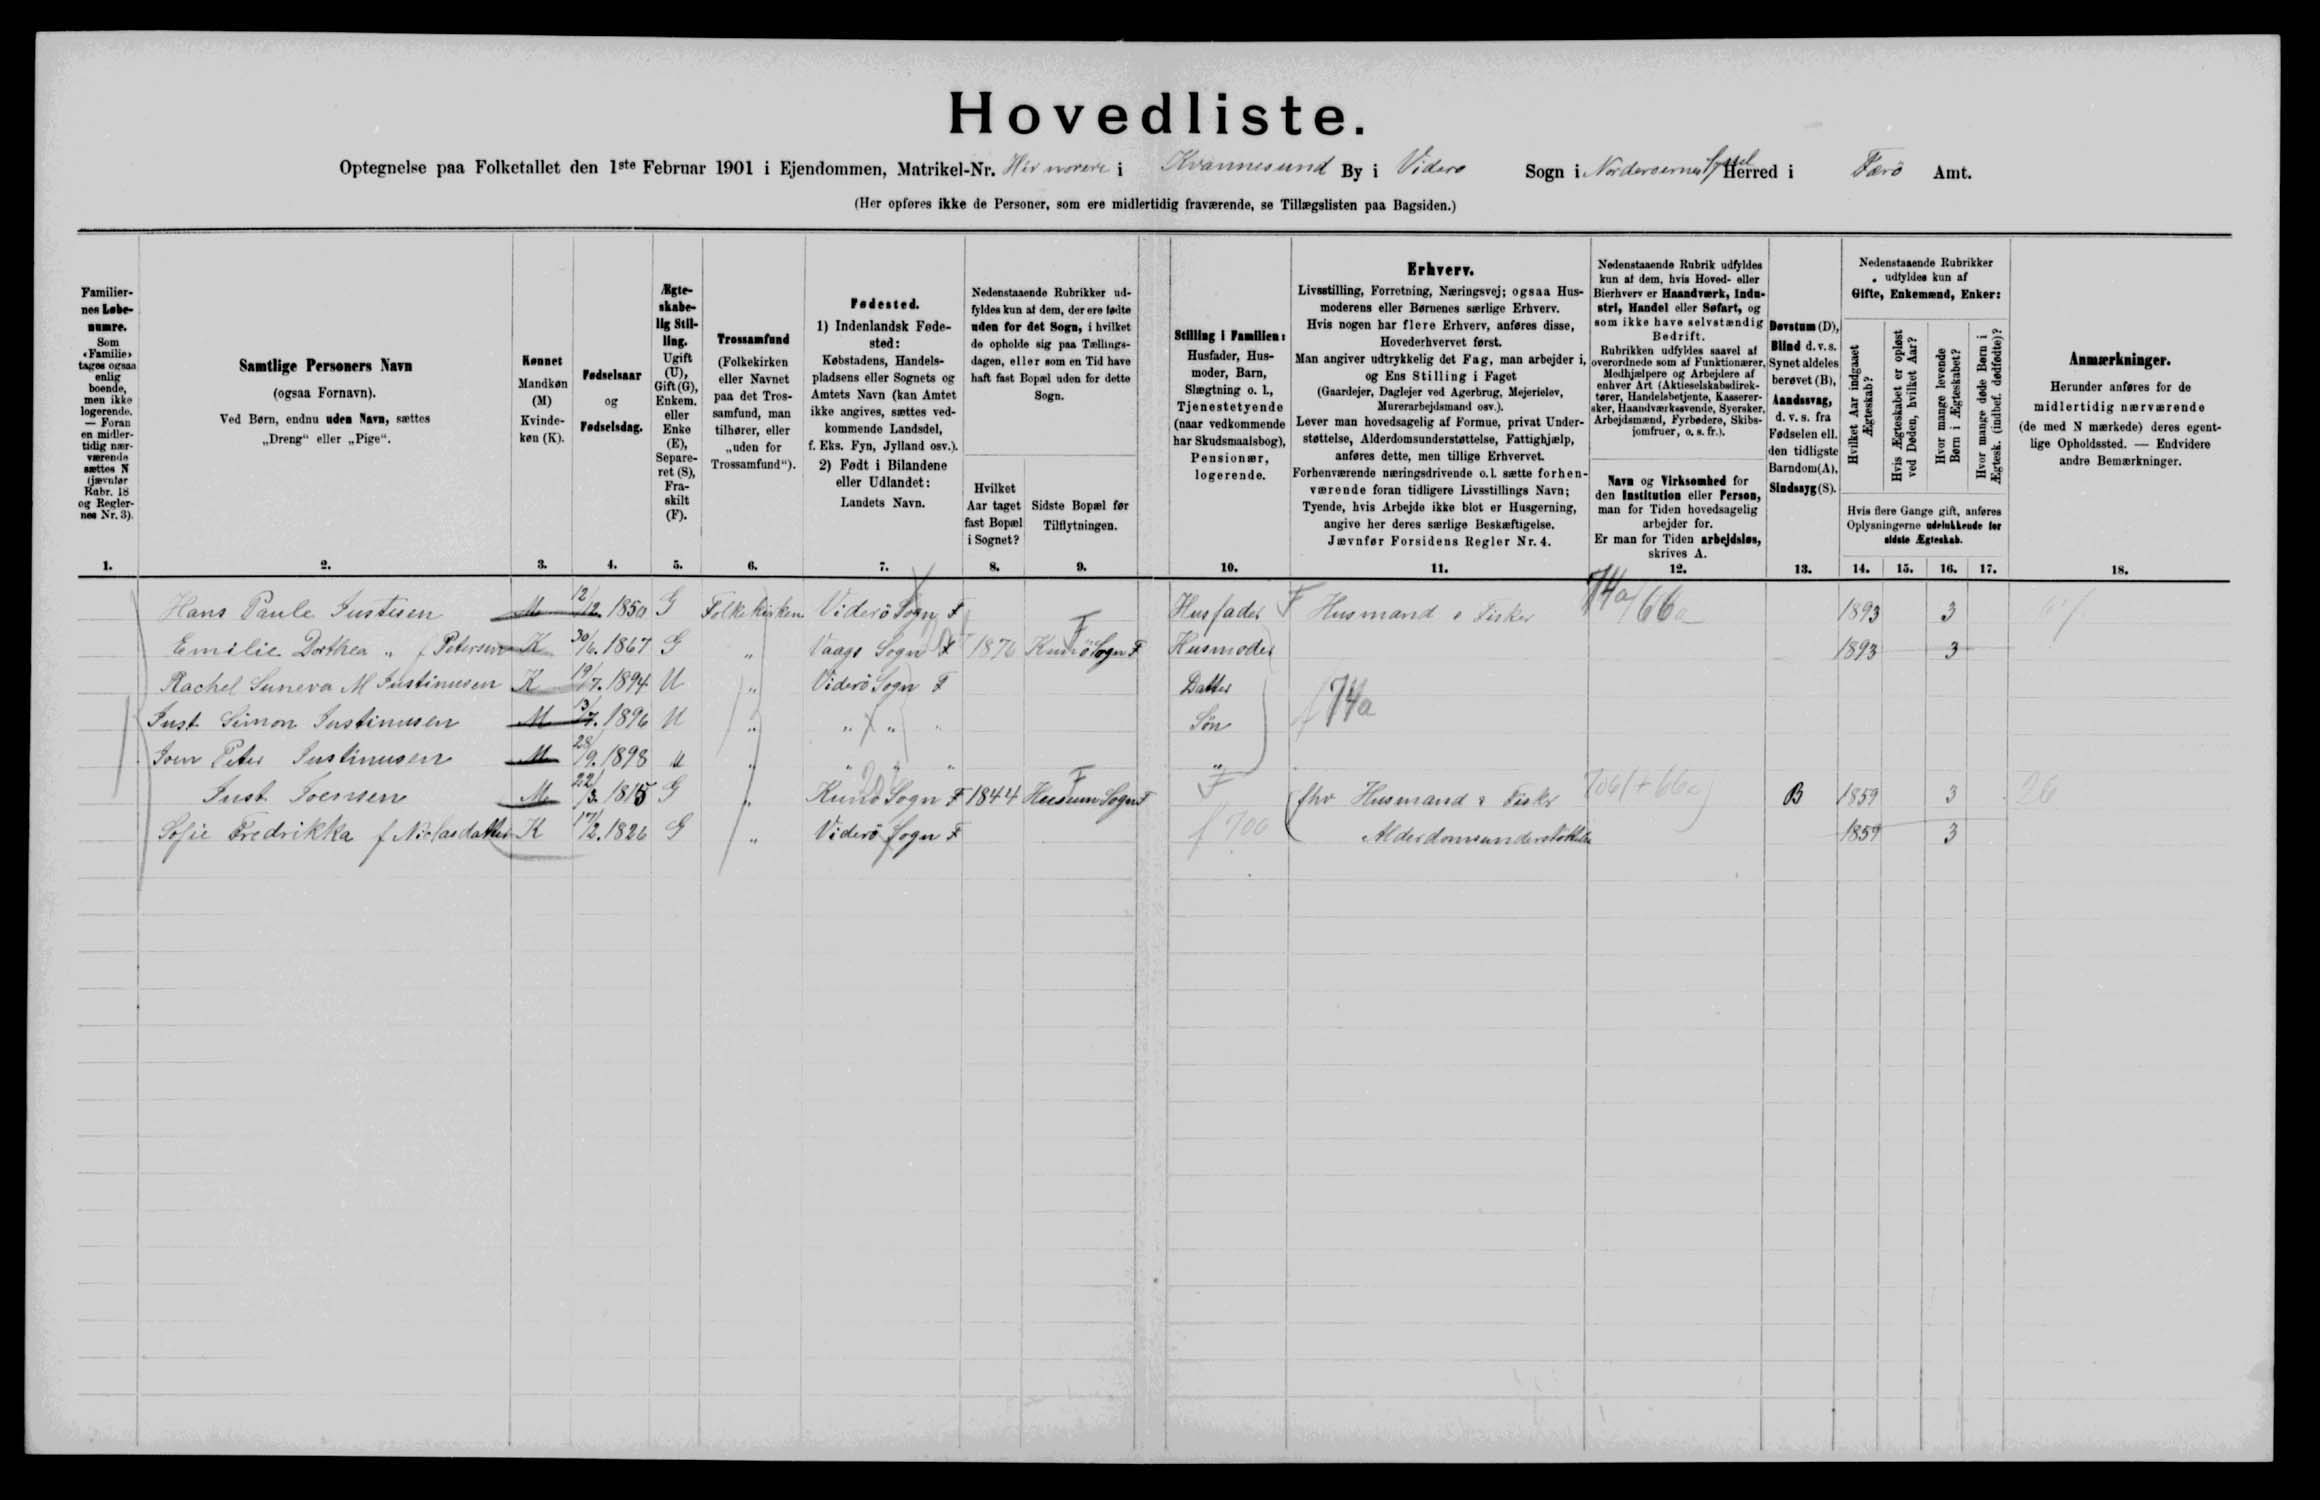 Hovedliste.
Optegnelse paa Folketallet den 1ste Februar 1901 i Ejendommen, Matrikel-Nr. i Kvannesund By i Viderø Sogn i Norderoernes Syssel Herred i Færö Amt.
(Her opføres ikke de Personer, som ere midlertidig fraværende, se Tillægslisten paa Bagsiden.)
Familiernes Løbenumre.
Som «Familie» tages ogsaa enlig boende, men ikke logerende. — Foran en midlertidig nærværende sættes N (jævnfør Rubr. 18 og Reglernes Nr. 3).
1.
Samtlige Personers Navn
(ogsaa Fornavn).
Ved Børn, endnu uden Navn, sættes
„Dreng“ eller „Pige“.
2.
Kønnet
Mandkøn (M)
Kvindekøn (K).
3.
Fødselsaar
og
Fødselsdag.
4.
Ægteskabelig Stilling.
Ugift (U), Gift (G), Enkem. eller Enke (E), Separeret (S), Fraskilt (F).
5.
Trossamfund
(Folkekirken eller Navnet paa det Trossamfund, man tilhører, eller „uden for Trossamfund“).
6.
Fødested.
1) Indenlandsk Fødested:
Købstadens, Handelspladsens eller Sognets og Amtets Navn (kan Amtet ikke angives, sættes vedkommende Landsdel, f. Eks. Fyn, Jylland osv.).
2) Født i Bilandene eller Udlandet:
Landets Navn.
7.
Nedenstaaende Rubrikker udfyldes kun af dem, der ere fødte uden for det Sogn, i hvilket de opholde sig paa Tællingsdagen, eller som en Tid have haft fast Bopæl uden for dette Sogn.
Hvilket Aar taget fast Bopæl i Sognet?
8.
Sidste Bopæl før Tilflytningen.
9.
Stilling i Familien:
Husfader, Husmoder, Barn, Slægtning o. l., Tjenestetyende (naar vedkommende har Skudsmaalsbog), Pensionær, logerende.
10.
Erhverv.
Livsstilling, Forretning, Næringsvej; ogsaa Husmoderens eller Børnenes særlige Erhverv.
Hvis nogen har flere Erhverv, anføres disse, Hovederhvervet først.
Man angiver udtrykkelig det Fag, man arbejder i, og Ens Stilling i Faget
(Gaardejer, Daglejer ved Agerbrug, Mejerielev, Murerarbejdsmand osv.).
Lever man hovedsagelig af Formue, privat Understøttelse, Alderdomsunderstøttelse, Fattighjælp, anføres dette, men tillige Erhvervet.
Forhenværende næringsdrivende o. l. sætte forhenværende foran tidligere Livsstillings Navn;
Tyende, hvis Arbejde ikke blot er Husgerning, angive her deres særlige Beskæftigelse.
Jævnfør Forsidens Regler Nr. 4.
11.
Nedenstaaende Rubrik udfyldes kun af dem, hvis Hoved- eller Bierhverv er Haandværk, Industri, Handel eller Søfart, og som ikke have selvstændig Bedrift.
Rubrikken udfyldes saavel af overordnede som af Funktionærer, Medhjælpere og Arbejdere af enhver Art (Aktieselskabsdirektører, Handelsbetjente, Kasserersker, Haandværkssvende, Syersker, Arbejdsmænd, Fyrbødere, Skibsjomfruer, o. s. fr.).
Navn og Virksomhed for den Institution eller Person, man for Tiden hovedsagelig arbejder for.
Er man for Tiden arbejdsløs, skrives A.
12.
Døvstum (D), Blind d. v. s. Synet aldeles berøvet (B), Aandssvag, d. v. s. fra Fødselen ell. den tidligste Barndom (A), Sindssyg (S).
13.
Nedenstaaende Rubrikker udfyldes kun af
Gifte, Enkemænd, Enker:
Hvilket Aar indgaaet Ægteskab?
Hvis Ægteskabet er opløst ved Døden, hvilket Aar?
Hvor mange levende Børn i Ægteskabet?
Hvor mange døde Børn i Ægtesk. (indbef. dødfødte)?
Hvis flere Gange gift, anføres Oplysningerne udelukkende for sidste Ægteskab.
14. 15. 16. 17.
Anmærkninger.
Herunder anføres for de midlertidig nærværende (de med N mærkede) deres egentlige Opholdssted. — Endvidere andre Bemærkninger.
18.
Hans Paule Justesen M 12/12. 1850 G Folkekirken Viderö Sogn F Husfader F Husmand & Fisker 74a/66a 1893 3
Emilie Dorthea „ f Petersen K 30/6. 1867 G „ Vaags Sogn F 1876 Kunö Sogn F Husmoder 1893 3
Rachel Suneva M Justinusen K 19/7. 1894 U „ Viderö Sogn F Datter
Just Simon Justinusen M 13/7. 1896 U „ „ „ „ Søn 74a
Joen Peter Justinusen M 28/9. 1898 U „ „ „ „ „
Just Joensen M 22/3. 1815 G „ Kunö Sogn F 1844 Husum Sogn F F fhv Husmand & Fiskr B 1859 3 26
Sofie Fredrikka f Niclasdatter K 17/2. 1826 G „ Viderö Sogn F 700 Alderdomsunderstøttelse 1859 3